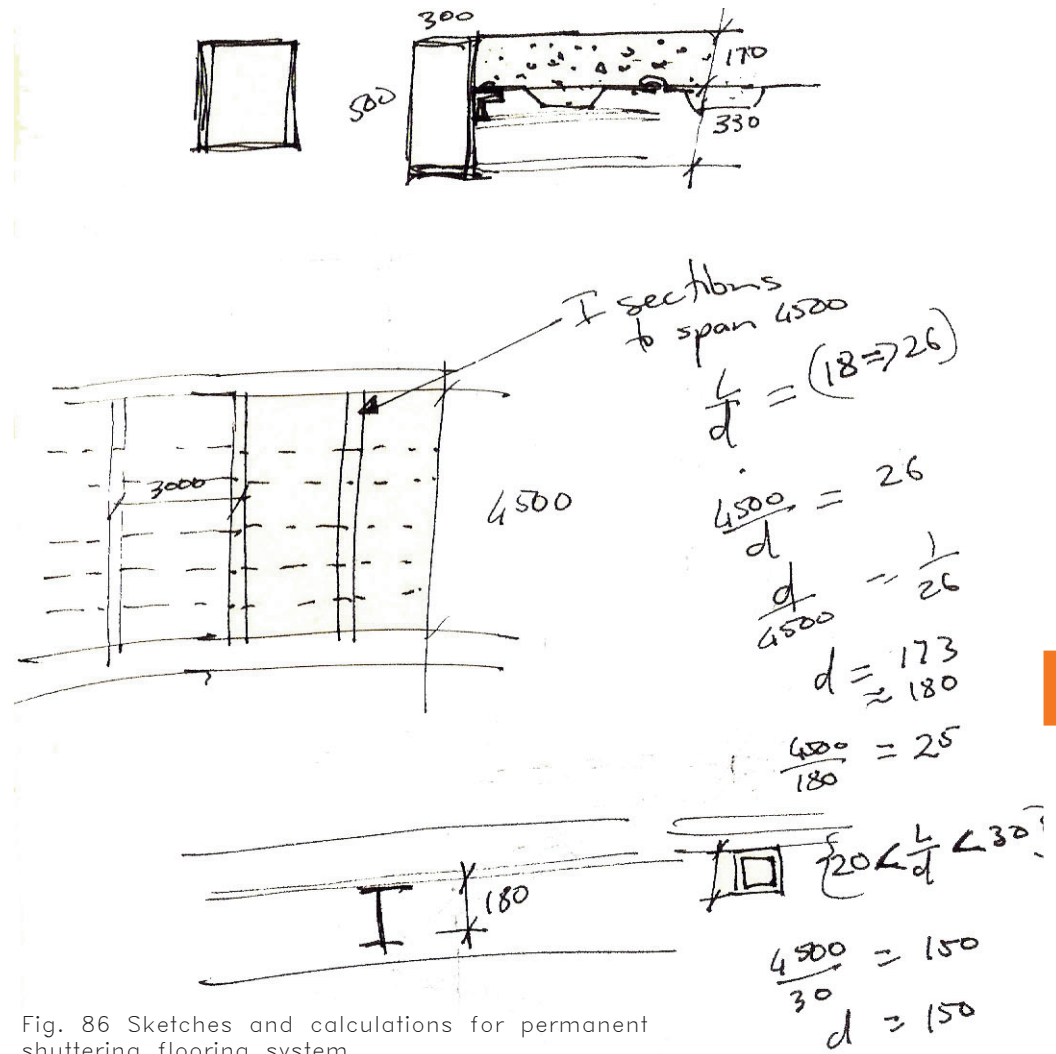 300
170
500
330
I sections
to span 4500
L/d = (18=>26)
3000
4500
4500/d = 26
d/4500 = 1/26
d = 173
≈ 180
4500/180 = 25
180
{20<L/d<30}
4500/30 = 150
d = 150
Fig. 86 Sketches and calculations for permanent
shuttering flooring system